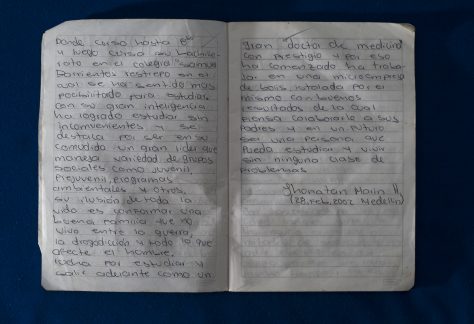 Donde curso hasta 5º
y luego curso su bachille-
rato en el colegial
Barrientos restrepo en el
cual se ha sentido mas
pocibilitado para estudiar
con su gran inteligencia
ha logrado estudiar sin
inconvenientes y se
destaca por ser en su
comunidad un gran lider que
maneja variedad de grupos
sociales como juvenil,
prejuvenil, programas
ambientales y otros.
su ilusion de toda la
vida es conformar una
buena familia que no
viva entre la guerra,
la drogadiccion y todo lo que
afecte el hombre.
lucha por estudiar y
salir adelante como un
gran doctor de medicina
con prestigio y por eso
ha comenzado ha traba-
jar en una microempresa
de bolis, instalada por el
mismo con buenos
resultados de lo cual
piensa colaborarle a sus
padres y en un futuro
ser una persona que
pueda estudiar y vivir
sin ninguna clase de
problemas
Jhonatan Marin
(28. Feb. 2002 Medellin)